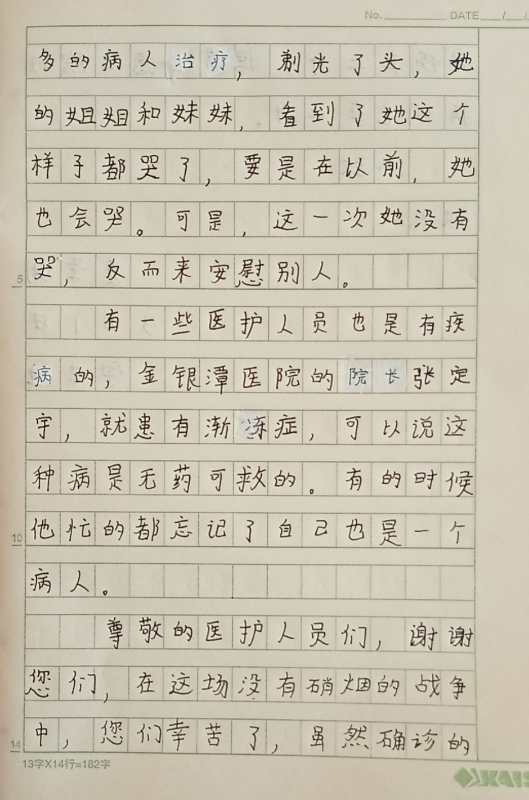 No. DATE / /
多的病人治疗，剃光了头，她
的姐姐和妹妹，看到了她这个
样子都哭了，要是在以前，她
也会哭。可是，这一次她没有
哭，反而来安慰别人。
5
有一些医护人员也是有疾
病的，金银潭医院的院长张定
宇，就患有渐冻症，可以说这
种病是无药可救的。有的时候
他忙的都忘记了自己也是一个
10
病人。
尊敬的医护人员们，谢谢
您们，在这场没有硝烟的战争
中，您们幸苦了，虽然确诊的
14
13字X14行=182字